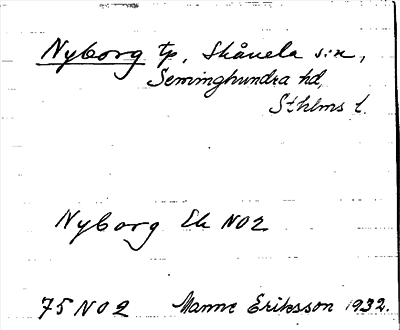 Nyborg tp, Skånela s:n,
Seminghundra hd,
Sthlms l.
Nyborg Ek NO2
75 NO2 Manne Eriksson 1932.